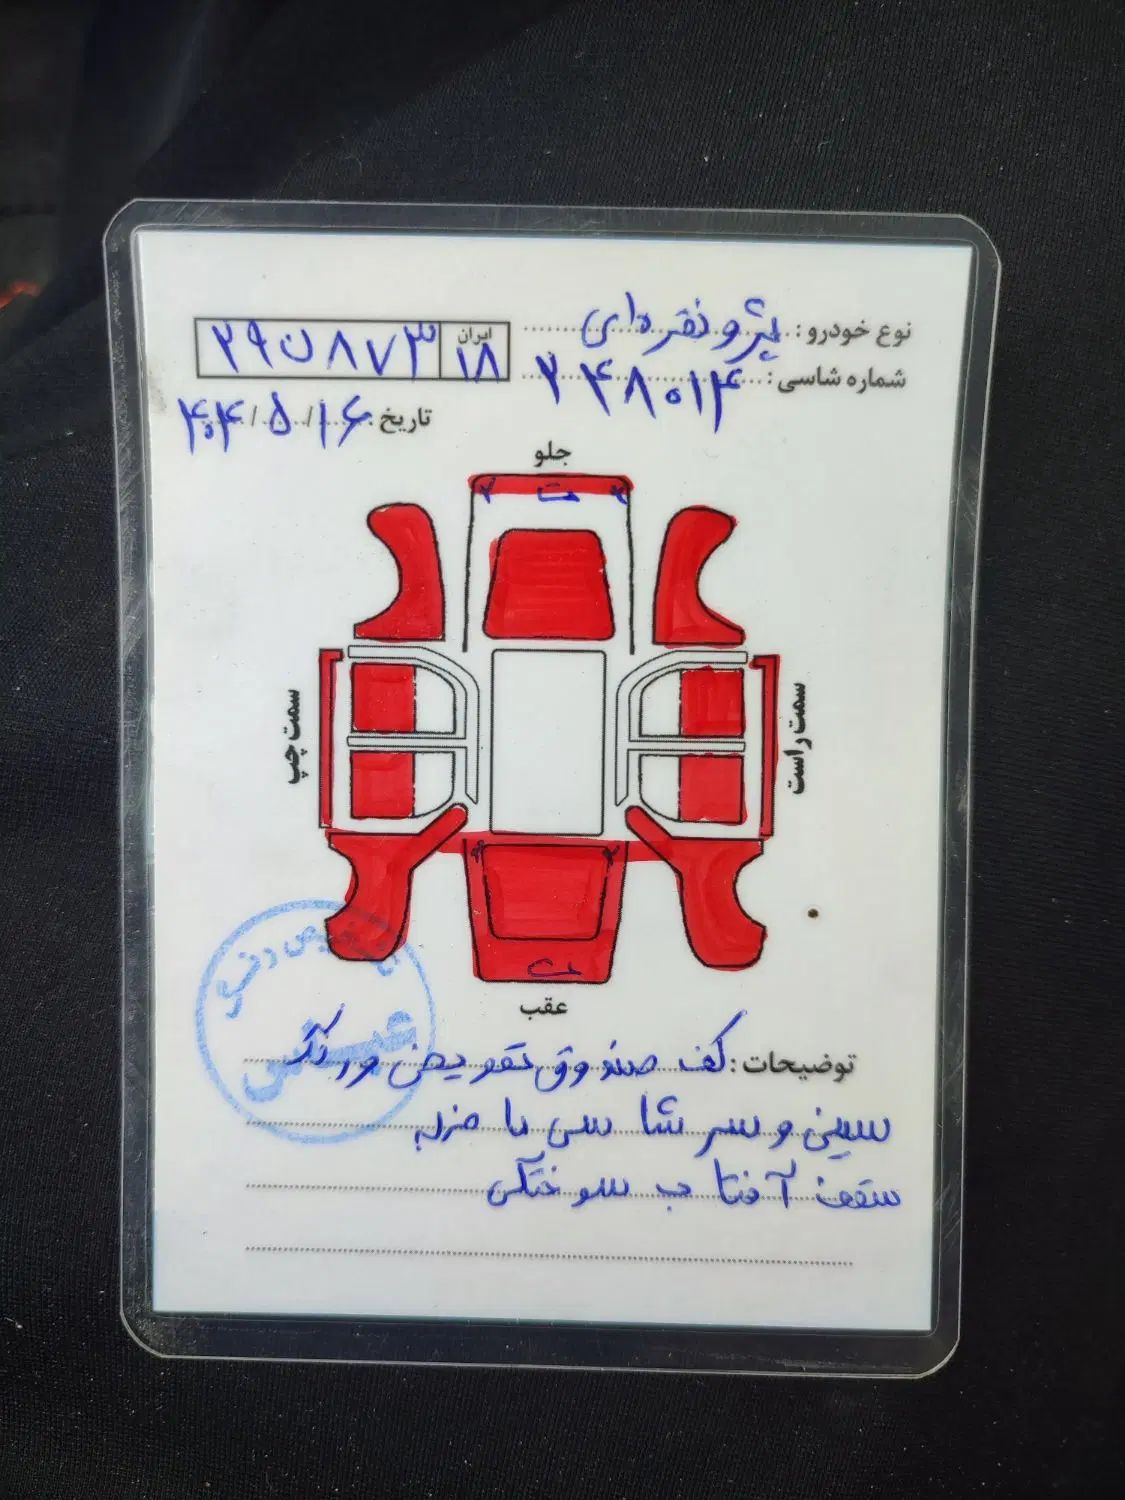 نوع خودرو: پژو نقره‌ای
ایران ۱۸ ۲۹ ن ۸۷۳
شماره شاسی: ۲۴۸۰۱۴
تاریخ ۴۰۴/۵/۱۶
جلو
ت
سمت چپ
سمت راست
ت
عقب
توضیحات: کف صندوق تعویض و رنگ
سینی و سر شاسی ها ضربه
سقف آفتاب سوختگی